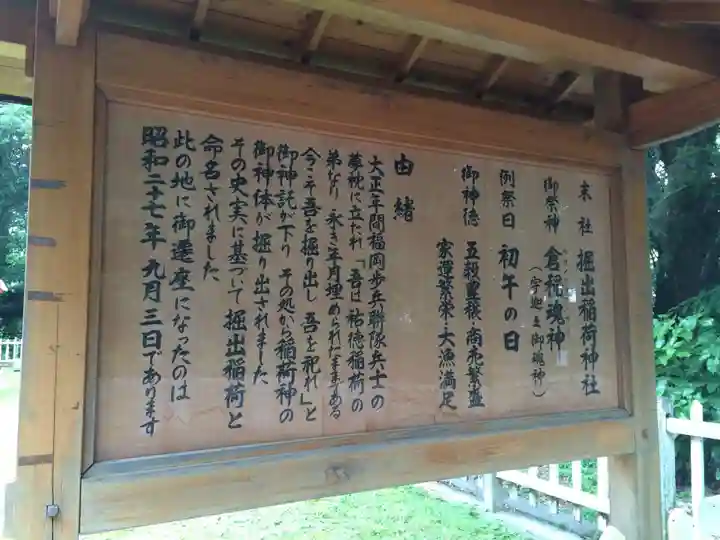 末社 掘出稲荷神社
御祭神 倉稲魂神
(宇迦之御魂神)
例祭日 初午の日
御神徳 五穀豊穣・商売繁盛
家運繁栄・大漁満足
由緒
大正年間福岡歩兵聯隊兵士の
夢枕に立たれ「吾は祐徳稲荷の
弟なり 永き年月埋められたままである
今こそ吾を掘り出し 吾を祀れ」と
御神託が下り その処から稲荷神の
御神体が掘り出されました
その史実に基づいて 掘出稲荷と
命名されました
此の地に御遷座になったのは
昭和二十七年九月三日であります